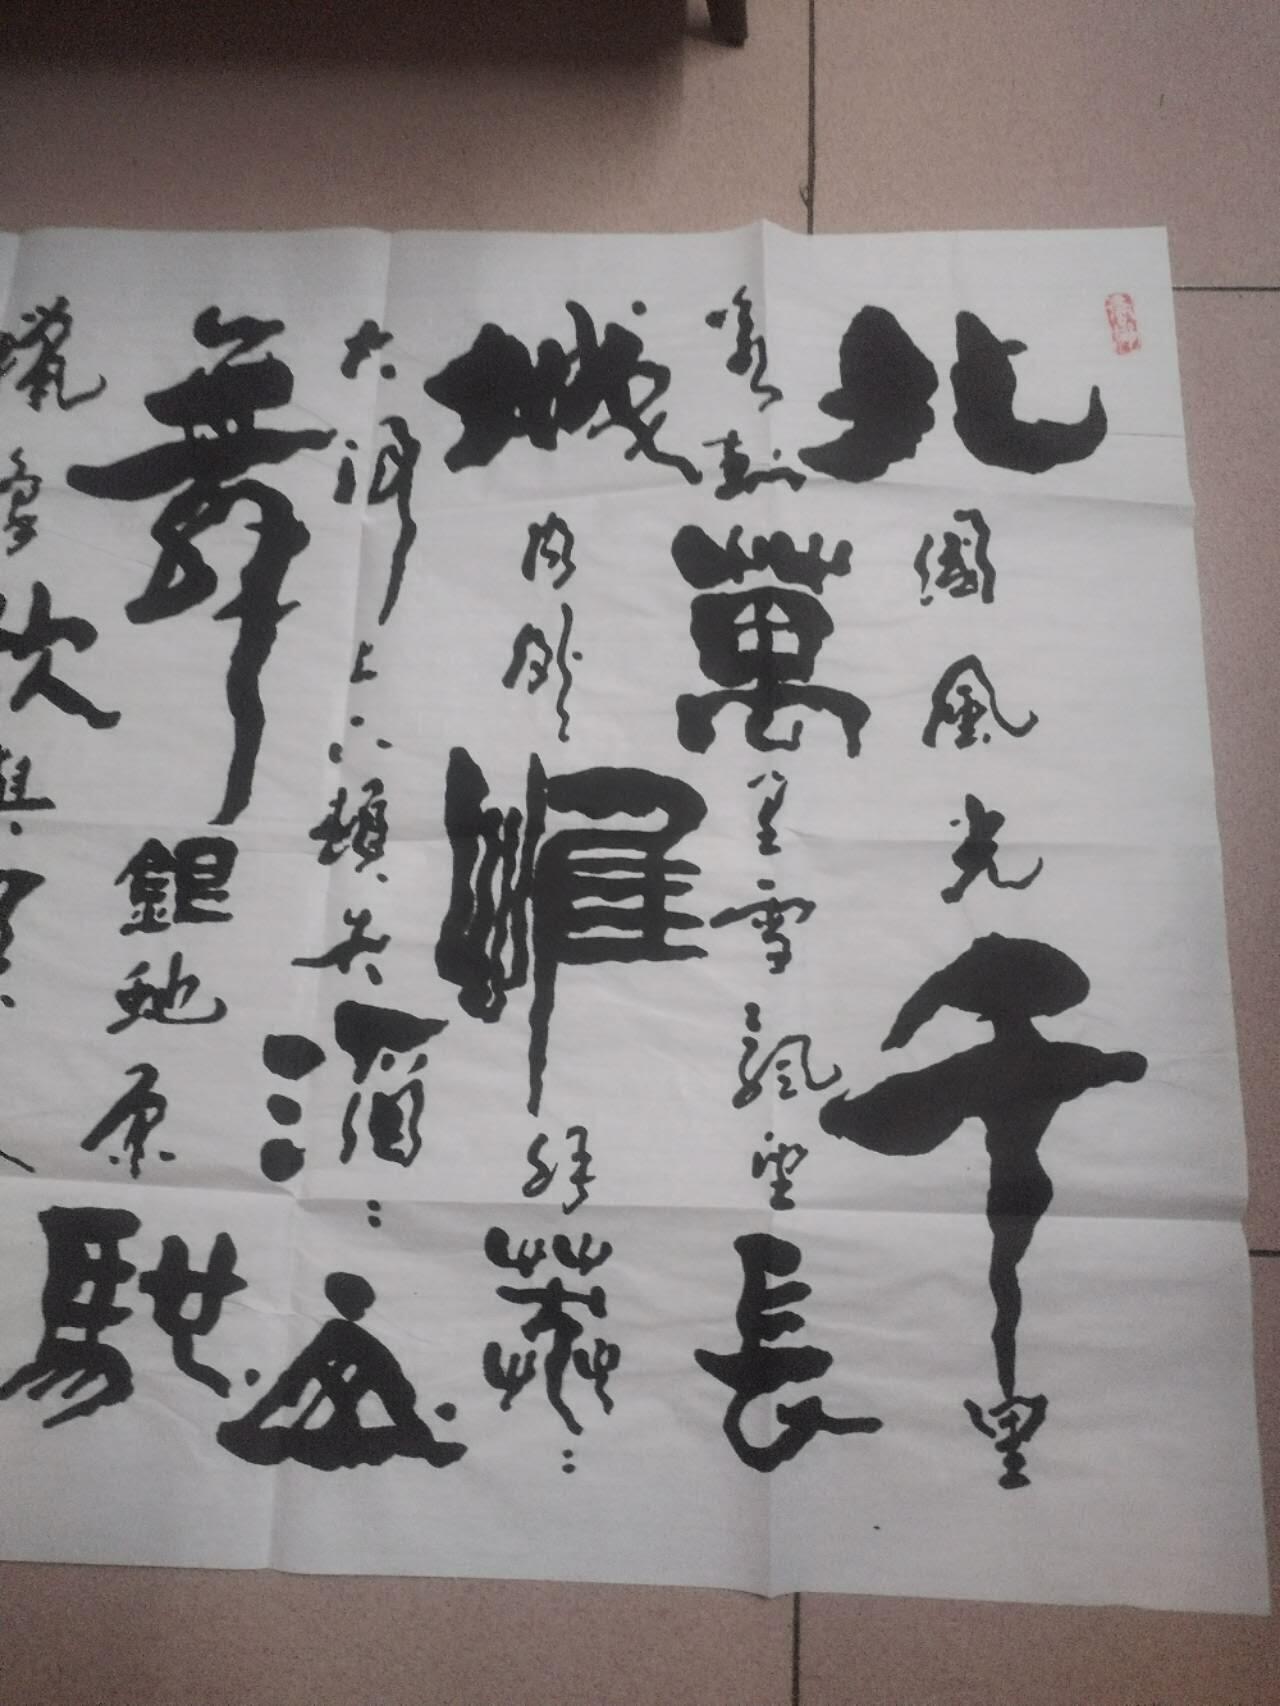 北國風光千里
封萬里雪飄望長
城内外惟餘莽:
大河上下頓失滔:山
舞銀蛇原馳
蠟象欲與